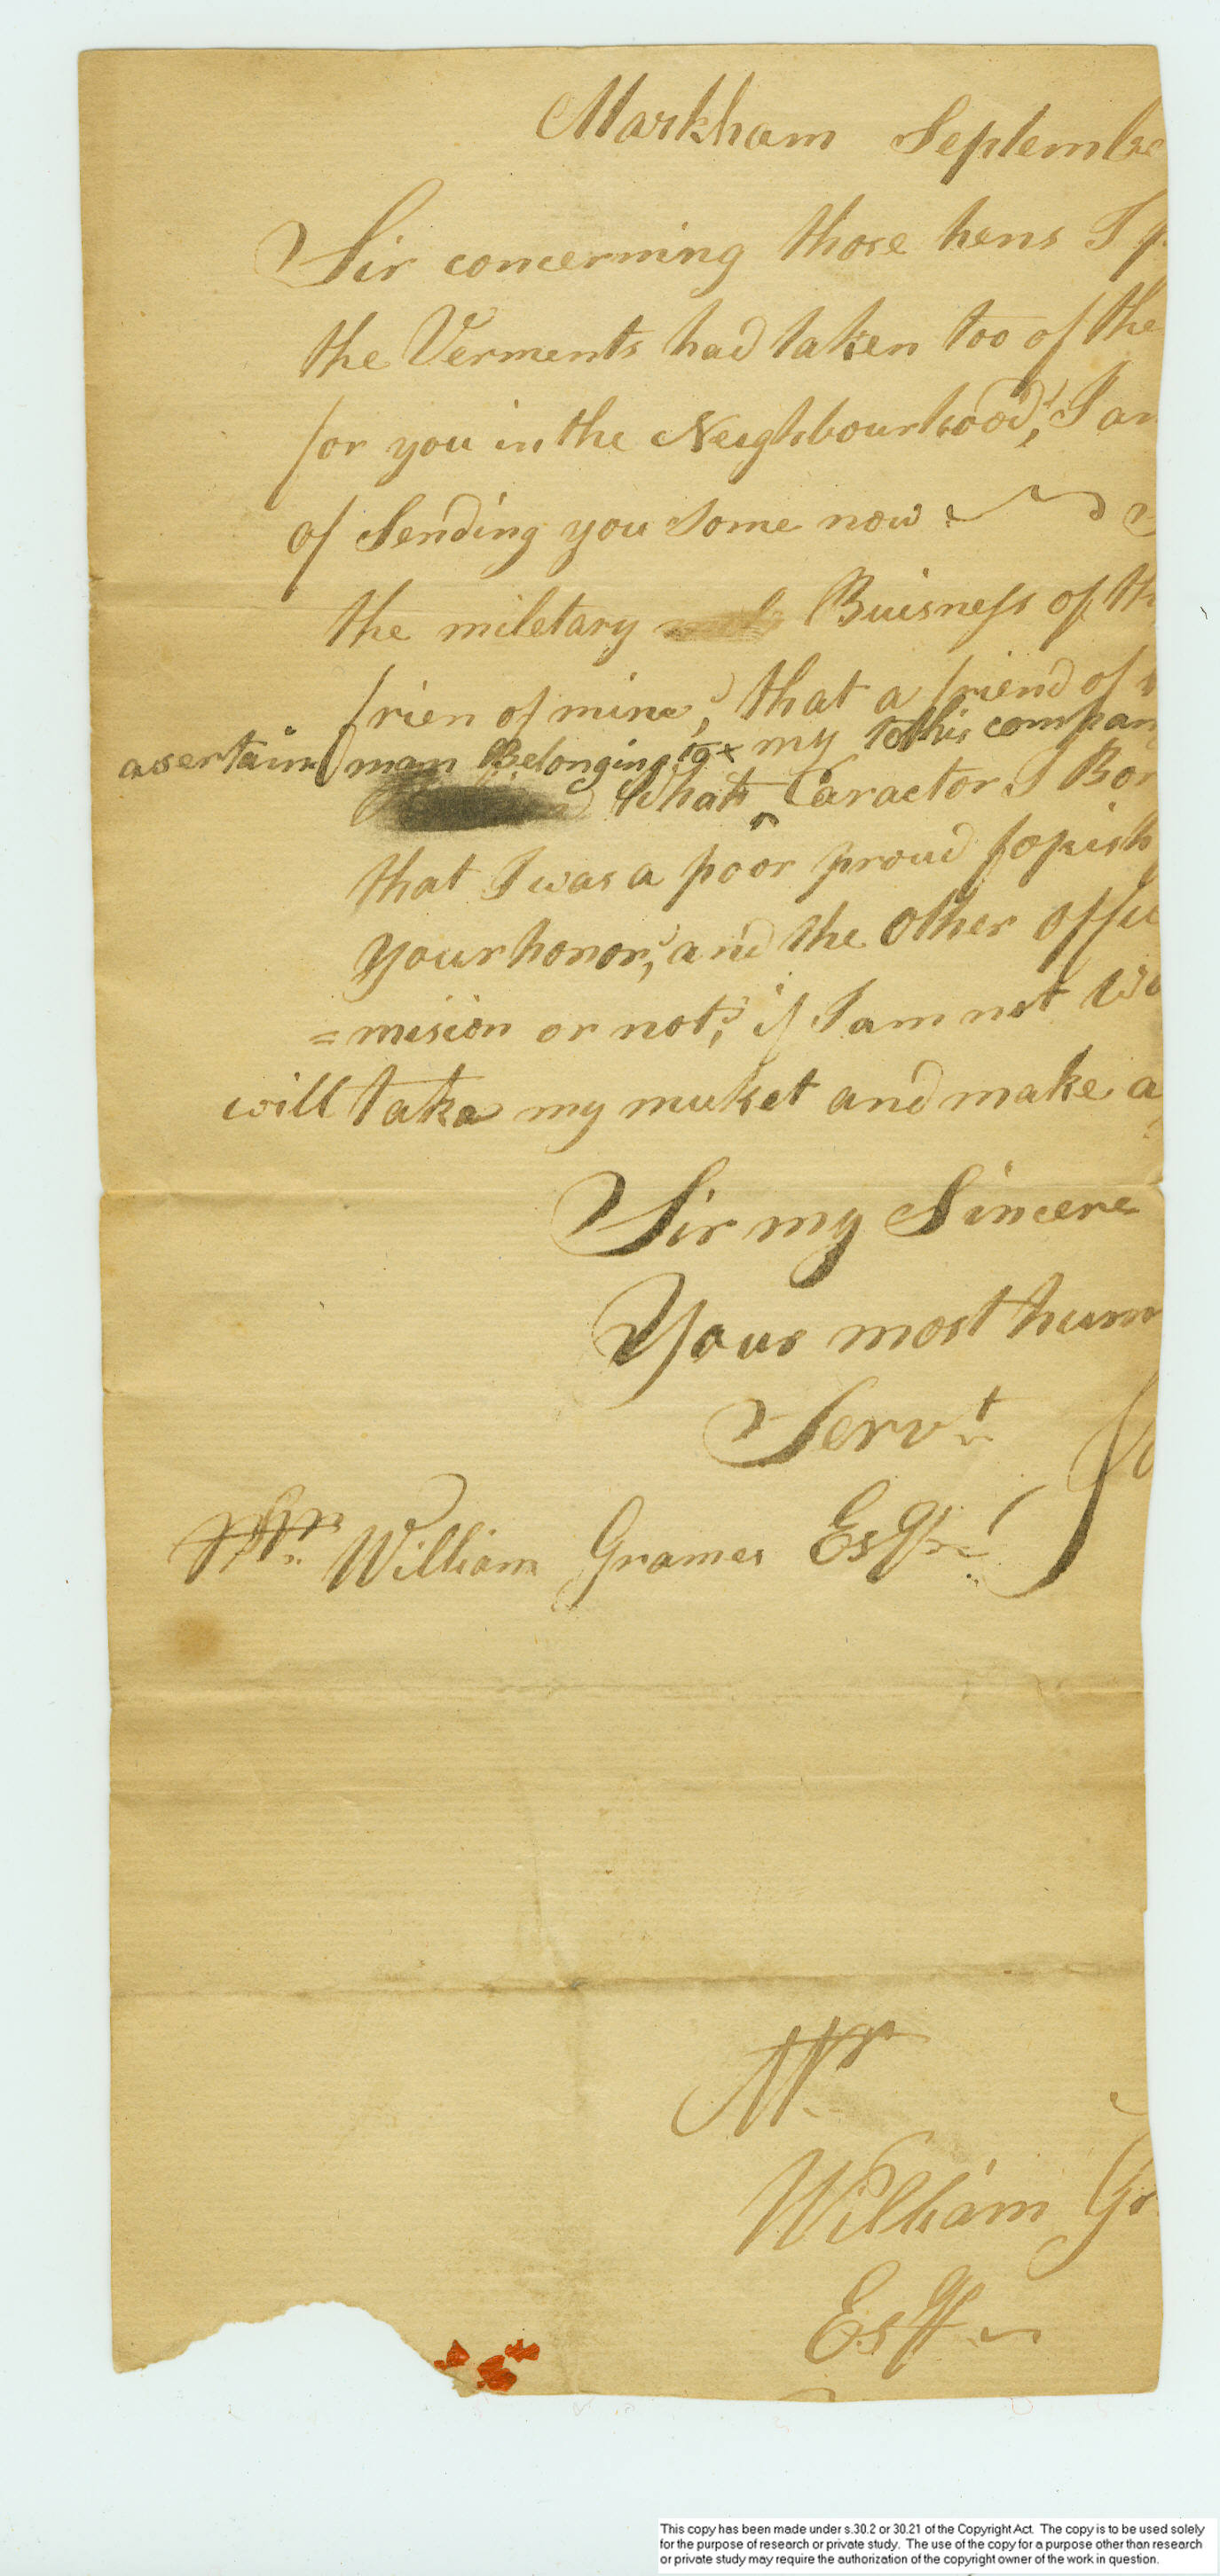 Markham Septembe
Sir concerning those hens I
the Verments had taken too of the
for you in the Neighbourhood, I am
of Sending you some now
the miletary Buisness of th
frien of mine, that a friend of
asertain man Belonging to my to his compan
what Caractor I Bor
that I was a poor proud fopish
your honor, and the other offic
=mision or not, if I am not wo
will take my musket and make a
Sir my Sincere
Your most hum
Servt
Wm William Grames Esqr
Mr
William Gr
Esqr
This copy has been made under s.30.2 or 30.21 of the Copyright Act. The copy is to be used solely
for the purpose of research or private study. The use of the copy for a purpose other than research
or private study may require the authorization of the copyright owner of the work in question.